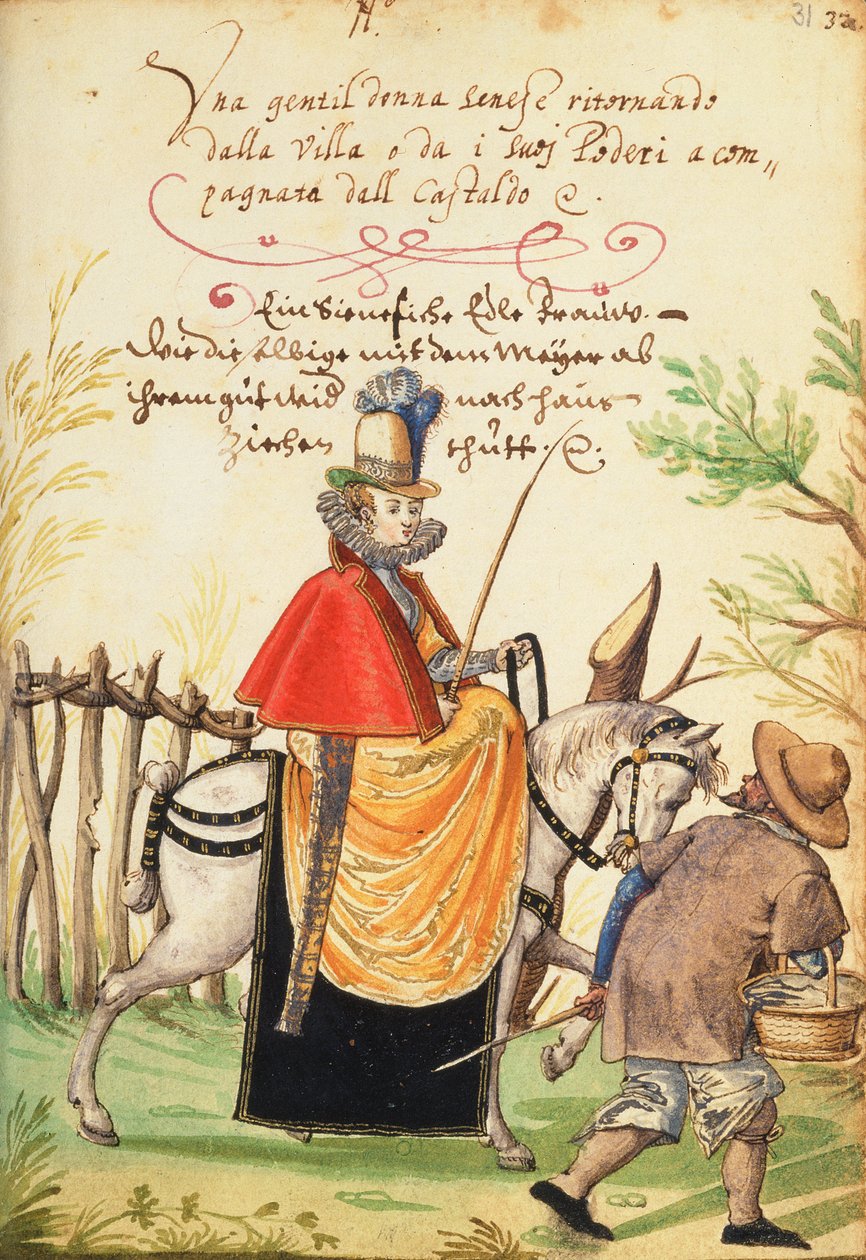 31 32.
Una gentil donna Senese ritornando
dalla Villa o da i suoj Poderi acom„
pagnata dall Castaldo
Ein Sienesische Edle Frauw.
Wie die selbige mit dem Meÿer ab
ihrem gut wid nach haus
Ziechen thutt.